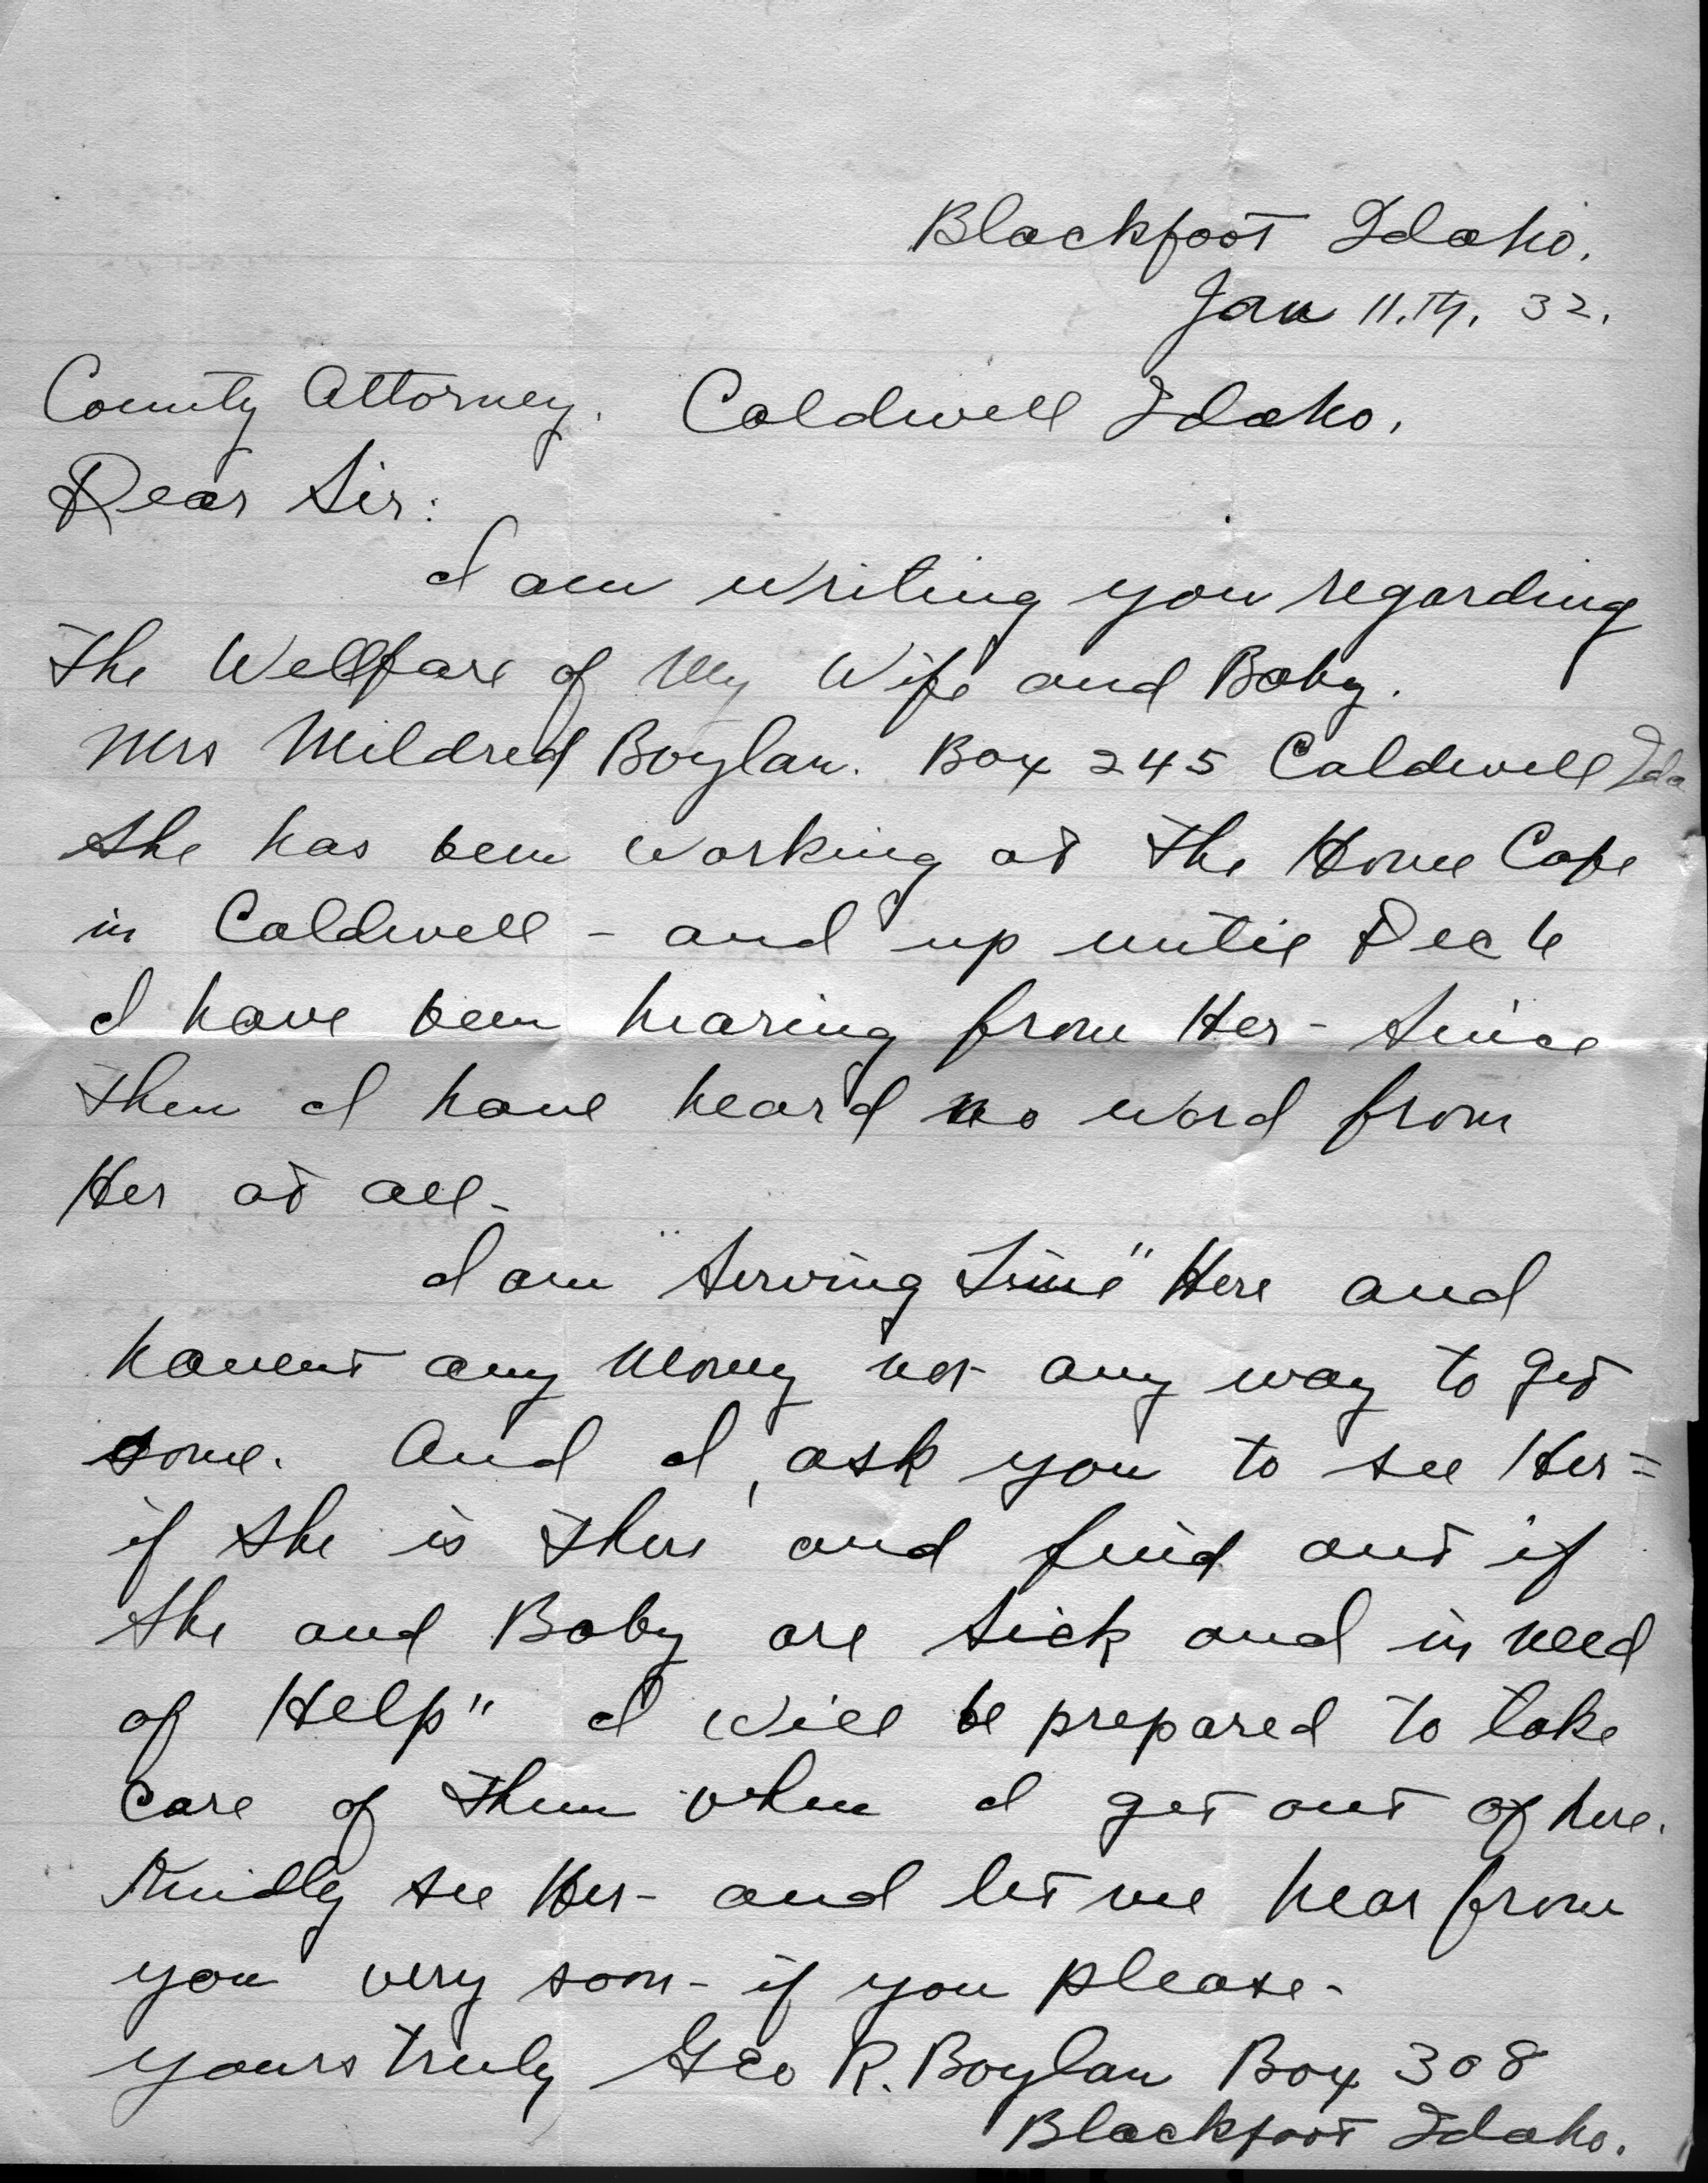 Blackfoot Idaho.
Jan 11.th. 32.
County Attorney. Caldwell Idaho.
Dear Sir:
I am writing you regarding
the Wellfare of My Wife and Baby.
Mrs Mildred Boylan. Box 245 Caldwell Ida
She has been working at the Home Cafe
in Caldwell - and up until Dec 6
I have been hearing from Her - Since
then I have heard no word from
Her at all -
I am "Serving Time" Here and
havent any Money nor any way to get
some. And I, ask you to see Her =
if She is there and find out if
She and Baby are Sick and in need
of Help" I will be prepared to take
care of them when I get out of here.
Kindly see Her - and let me hear from
you very soon - if you please -
yours truly Geo R. Boylan Box 308
Blackfoot Idaho.